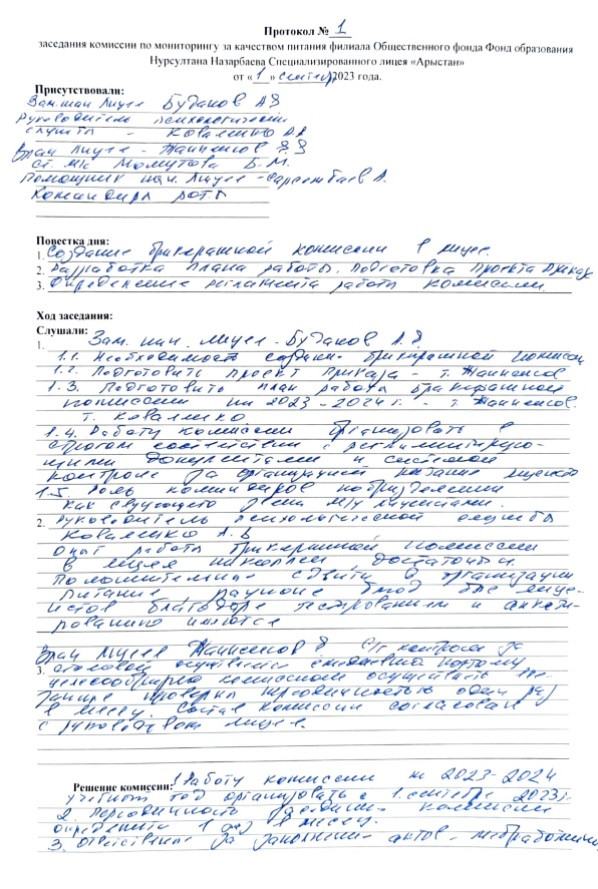 Протокол № 1
заседания комиссии по мониторингу за качеством питания филиала Общественного фонда Фонд образования
Нурсултана Назарбаева Специализированного лицея «Арыстан»
от « 1 » сентябр 2023 года.
Присутствовали:
Зам. нач лицея Буданов А
Руководитель психологической
службы - Коваленко
Врач лицея -
Ст. м/с Момутова Б. М.
Помощник нач. лицея -
Командиры рот
Повестка дня:
1. Создание бракеражной комиссии в лицее.
2. Разработка плана работы. Подготовка проекта приказ
3. Определение регламента работы комиссии
Ход заседания:
Слушали:
1. Зам. нач. лицея - Буданов А.
1.1. Необходимость создани бракеражной комисси
1.2. Подготовить проект приказа - т.
1.3. Подготовить план работы бракеражной
комиссии на 2023-2024 г. - т.
т. Коваленко
1.4. Работу комиссии организовать в
строгом соответствии с регламентирую-
щими документами и системой
контроля за организацией питания
1.5. Роль командиров подразделений
как связующего звена м/у лицеистами.
2. Руководитель психологической службы
Коваленко А.
Опыт работы бракеражной комиссии
в лицее накоплен, достаточн.
Положительные сдвиги в организации
питания, рационе блюд для лице-
истов благодаря тестированием и анкети-
рованию имеются
Врач лицея контроль за
3. столовой ежедневно поэтому
целесообразно комиссией осуществлять
проверки периодичностью один раз
в месяц. Состав комиссии согласован
с руководством лицея.
Решение комиссии: 1. Работу комиссии на 2023-2024
учебный год организовать с 1. сентября 2023г.
2. Периодичность заседани комиссии
определить 1 раз в месяц.
3. Ответствен за заполнение актов -